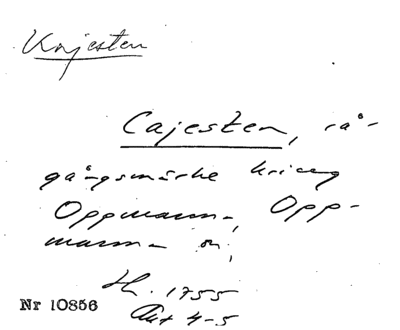 Kajesten
Cajesten, rå-
gångsmärke kring
Oppmanna, Opp-
manna sn;
Lh. 1755
Akt 4-5
Nr 10856